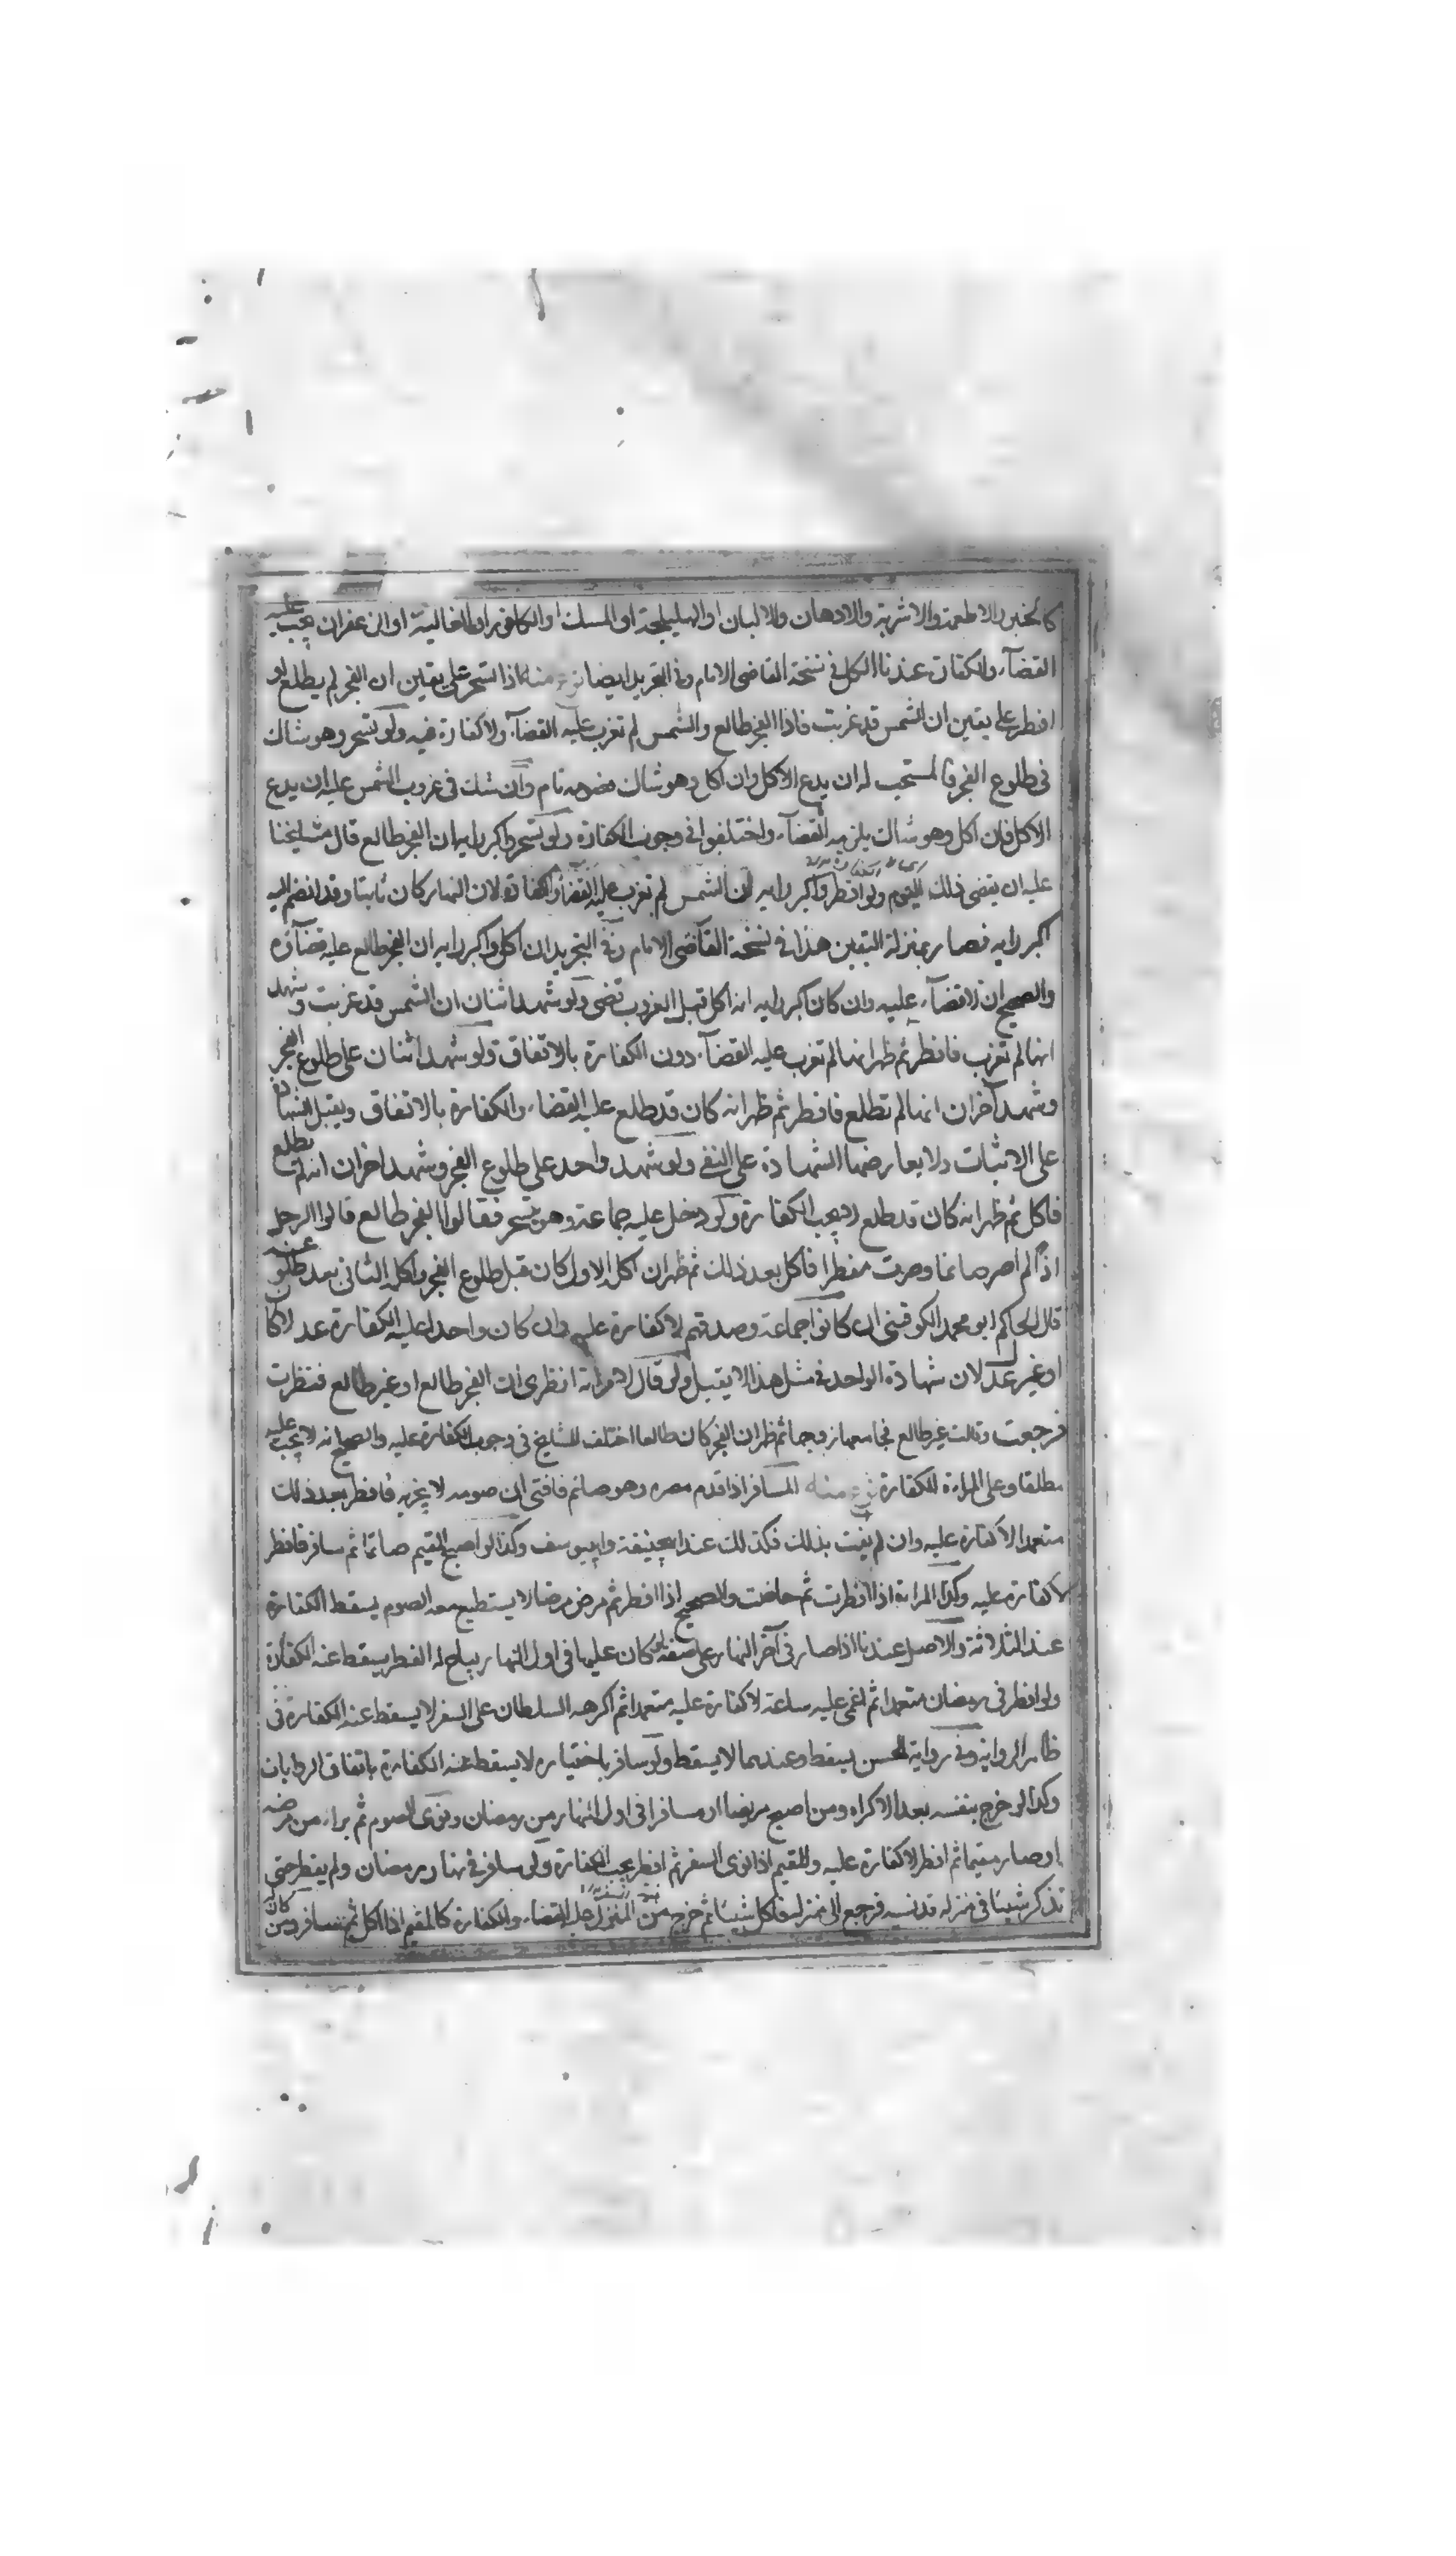 كالخبز والاطعمة والاشربة والادهان والالبان او الهليلجة او المسك او الكافور او الغالية او الزعفران يجب عليه
القضاء والكفارة عندنا الكل في نسخة القاضي الامام وفي التجريد ايضا نوع منه اذا تسحر على يقين ان الفجر لم يطلع او
افطر على يقين ان الشمس قد غربت فاذا الفجر طالع والشمس لم تغرب عليه القضاء ولا كفارة فيه ولو تسحر وهو شاك
في طلوع الفجر فالمستحب له ان يدع الاكل وان اكل وهو شاك فصومه تام وان شك في غروب الشمس عليه ان يدع
الاكل فان اكل وهو شاك يلزمه القضاء واختلفوا في وجوب الكفارة ولو تسحر واكبر رايه ان الفجر طالع قال مشايخنا
عليه ان يقضي ذلك اليوم ولو افطر واكبر رايه ان الشمس لم تغرب عليه القضاء والكفارة لان النهار كان ثابتا وقد انضم اليه
اكبر رايه فصار بمنزلة اليقين هذا في نسخة القاضي الامام وفي التجريد ان اكل واكبر رايه ان الفجر طالع عليه قضاؤه
والصحيح ان لا قضاء عليه وان كان اكبر رايه انه اكل قبل الغروب قضى ولو شهد اثنان ان الشمس قد غربت وشهد
انها لم تغرب فافطر ثم ظهر انها لم تغرب عليه القضاء دون الكفارة بالاتفاق ولو شهد اثنان على طلوع الفجر
وشهد آخران انها لم تطلع فافطر ثم ظهر انه كان قد طلع عليه القضاء والكفارة بالاتفاق ويقبل الشهادة
على الاثبات ولا يعارضها الشهادة على النفي ولو شهد واحد على طلوع الفجر وشهد اخران انه لم يطلع
فاكل ثم ظهر انه كان قد طلع لا يجب الكفارة ولو دخل عليه جماعة وهو يتسحر فقالوا الفجر طالع قالوا الرجل
اذا لم اصر صائما وصرت مفطرا فاكل بعد ذلك ثم ظهر ان اكل الاول كان قبل طلوع الفجر واكله الثاني بعد طلوعه
قال الحاكم ابو محمد الكوفيني ان كانوا جماعة وصدقهم لا كفارة عليه وان كان واحدا عليه الكفارة عدلا كا
او غير عدل لان شهادة الواحد في مثل هذا لا يقبل ولو قال لامراته انظري ان الفجر طالع او غير طالع فنظرت
فرجعت وقالت غير طالع فجامعها زوجها ثم ظهر ان الفجر كان طالعا اختلف المشايخ في وجوب الكفارة عليه والصحيح انه لا يجب عليه
مطلقا وعلى المراة الكفارة نوع منه المسافر اذا قدم مصره وهو صائم فافتي ان صومه لا يجزيه فافطر بعد ذلك
متعمدا لا كفارة عليه وان لم يفت بذلك فكذلك عند ابي حنيفة وابي يوسف وكذا لو اصبح المقيم صائما ثم سافر فافطر
لا كفارة عليه وكذا المراة اذا افطرت ثم حاضت والصحيح اذا افطر ثم مرض مرضا لا يستطيع معه الصوم يسقط الكفارة
عند الثلاثة والاصل عندنا اذا صار في آخر النهار على صفة لو كان عليها في اول النهار يباح له الفطر يسقط عنه الكفارة
ولو افطر في رمضان متعمدا ثم اغمي عليه ساعة لا كفارة عليه متعمدا ثم اكرهه السلطان على السفر لا يسقط عنه الكفارة في
ظاهر الرواية وفي رواية الحسن يسقط وعندهما لا يسقط ولو سافر باختياره لا يسقط عنه الكفارة باتفاق الروايات
وكذا لو خرج بنفسه بعد الاكراه ومن اصبح مريضا او مسافرا في اول النهار من رمضان ونوى الصوم ثم براء من مرضه
او صار مقيما ثم افطر لا كفارة عليه والمقيم اذا نوى السفر ثم افطر يجب الكفارة ولو سافر في نهار رمضان ولم يفطر حتى
تذكر شيئا في منزله قد نسيه فرجع الى منزله فاكل شيئا ثم خرج من المنزل عليه القضاء والكفارة كالمقيم اذا اكل ثم سافر ومن كان